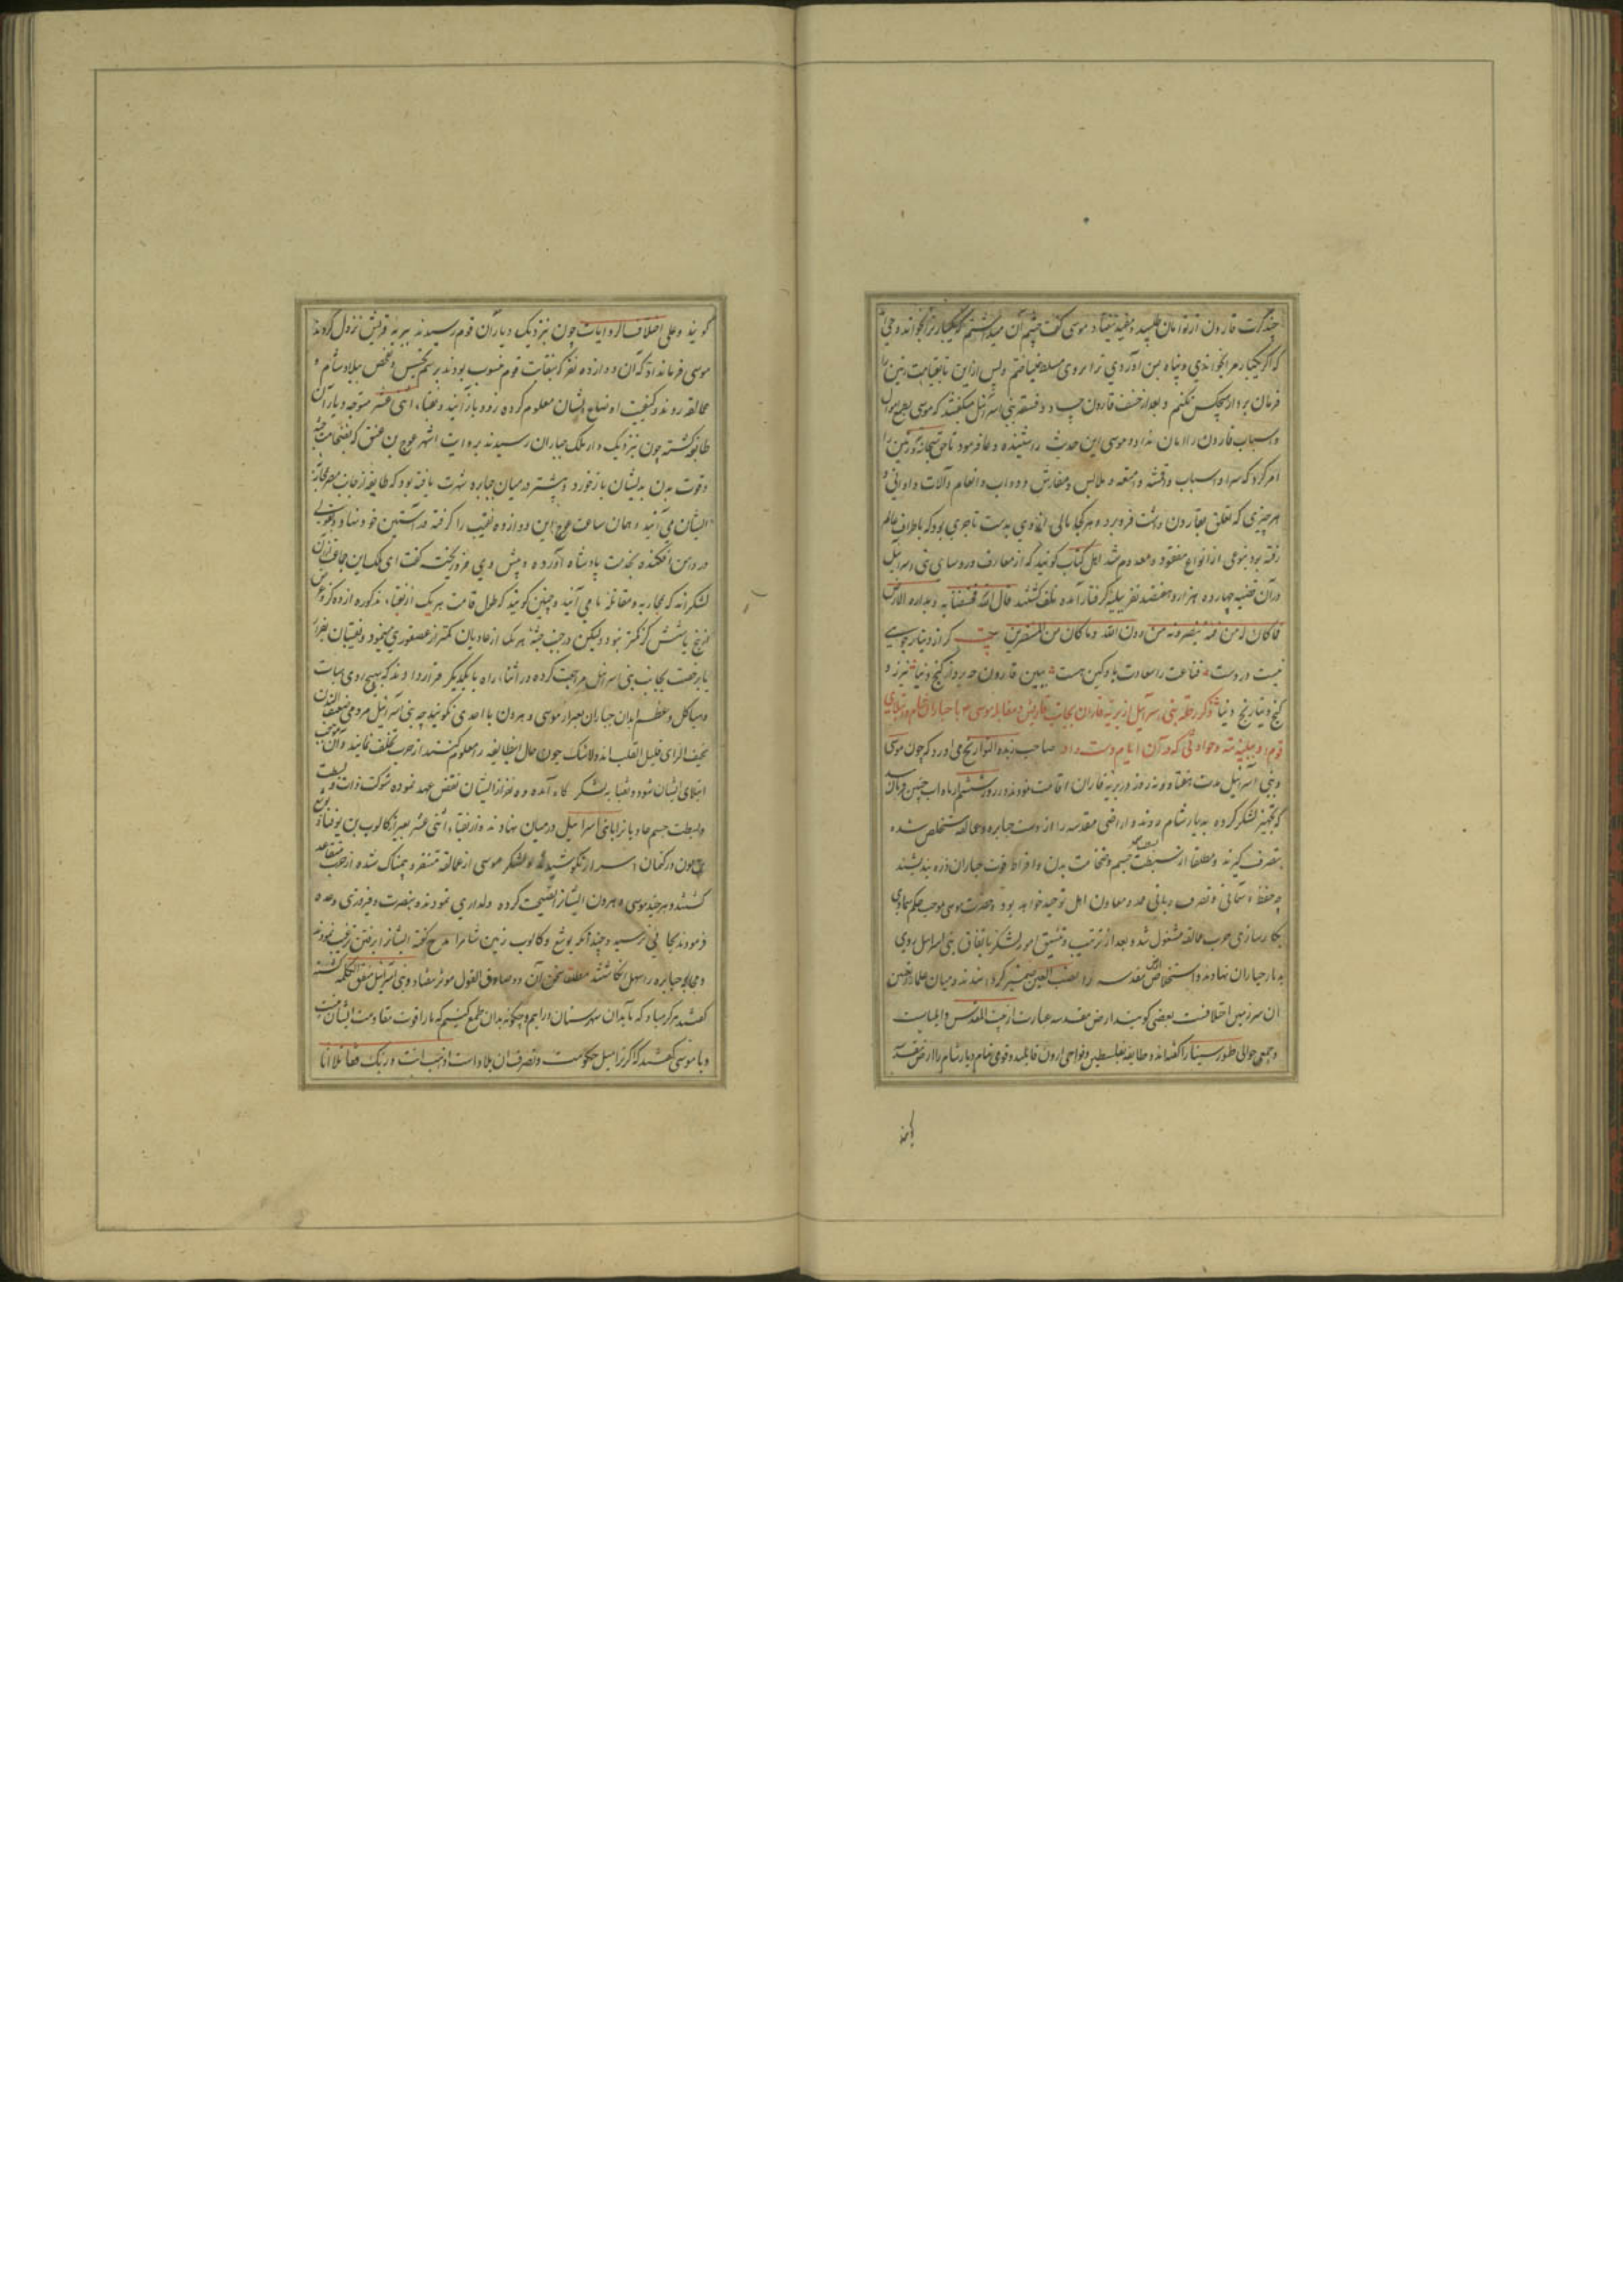 چند کرت قارون از تو امان طلبید و مفید نیفتاد موسی گفت چشم آن میداشتم که یکبار مرا نخواند وحی
که اگر یکبار مرا بخواندی و پناه بمن آوردی ترا بر وی مسلط نمیساختم و پس از این تا بقیامت زمین را
فرمان بردار هیچکس نکنم و بعد از خسف قارون فسقه بنی اسرائیل میگفتند که موسی بطمع اموال
و اسباب قارون را امان نداد و موسی این حدیث را شنیده دعا فرمود تا حق سبحانه زمین را
امر کرد که سرا و اسباب و اقشه و امتعه و ملابس و مفارش و دواب و انعام و آلات و اوانی و
هر چیزی که تعلق بقارون داشت فرو برد و هر کجا مالی از وی بدست تاجری بود که باطراف عالم
رفته بود بنوعی از انواع مفقود و معدوم شد اهل کتاب گویند که از معارف و روسای بنی اسرائیل
در آن قضیه چهارده هزار و هفتصد نفر ببلیه گرفتار آمده تلف گشتند قال الله فخسفنا به و بداره الارض
فما کان له من فئة ینصرونه من دون الله و ما کان من المنتصرین بیت که از دینار جویی
نیست در دست قناعت را سعادت باد کین هست ببین قارون چه برد از گنج دنیا نیرزد
گنج دنیا رنج دنیا ذکر رحلت بنی اسرائیل از بریه فاران بجانب و مقابله موسی با جباران شام و ابتلای
قوم او ببلیه تیه و حوادثی که در آن ایام دست داد صاحب زبدة التواریخ می آورد که چون موسی
و بنی اسرائیل مدت هفتاد و نه روز در بریه فاران اقامت نمودند در روز ششم از ماه اب چنین فرمان رسید
که تجهیز لشکر کرده بدیار شام روند و اراضی مقدسه را از دست جبابره و عمالقه مستخلص شده
بتصرف گیرند و مطلقا از بسطت جسم و ضخامت بدن و افراط قوت جباران نیندیشند
چه حفظ آسمانی و نصرت ربانی ممد و معاون اهل توحید خواهد بود و حضرت موسی بموجب حکم سماوی
بکارسازی حرب عمالقه مشغول شده بعد از ترتیب و تنسیق امور لشکر باتفاق بنی اسرائیل روی
بدیار جباران نهادند و استخلاص ارض مقدسه را نصب العین ضمیر گردانیدند و میان علما در تعیین
آن سرزمین اختلافست بعضی گویند ارض مقدسه عبارت از بیت المقدس و ایلیاست
و جمعی حوالی طور سینا را گفته اند و طایفه بفلسطین و نواحی اردن قایلند و قومی تمام دیار شام را ارض مقدسه
گویند و علی اختلاف الروایات چون نزدیک دیار آن قوم رسیدند ببریه نزول کردند
موسی فرمان داد که آن دوازده نفر که بنقابت قوم منسوب بودند برسم تجسس و تفحص ببلاد شام و
عمالقه روند و کیفیت اوضاع ایشان معلوم کرده زود باز آیند و نقباء اثنی عشر متوجه دیار آن
طایفه گشته چون نزدیک دار ملک جباران رسیدند بروایت اشهر عوج بن عنق که بضخامت جثه
و قوت بدن بدیشان باز خورد و پیشتر در میان جبابره شهرت یافته بود که طایفه از جانب مصر بمحاربه
ایشان می آیند و همان ساعت عوج این دوازده نقیب را گرفته در آستین خود نهاد و
در دامن افکنده بخدمت پادشاه آورده پیش وی فرو ریخت گفت ای ملک این جماعت از آن
لشکراند که بمحاربه و مقاتله ما می آیند و چنین گویند که طول قامت هر یک از نقباء مذکوره از ده گز و
پنج یا شش گز کمتر نبود ولیکن در جنب جثه هر یک از عادیان کمتر از عصفوری مینمود و نقیبان
با رخصت بجانب بنی اسرائیل مراجعت کرده در اثناء راه با یکدیگر قرار دادند که بهیچ روی مهابت
و هیاکل و عظم ابدان جباران بغیر از موسی و هرون با احدی نگویند چه بنی اسرائیل مردمی ضعیف البدن
نحیف الرای قلیل القلب اند و لاشک چون حال این طایفه را معلوم کنند از حرب تخلف نمایند و آن موجب
ابتلای ایشان شود و نقبا بلشکر گاه آمده ده نفر از ایشان نقض عهد نموده شوکت ذات و بسطت
و بسطت جسم عاد یانرا با بنی اسرائیل در میان نهادند و از نقباء اثنی عشر بغیر از کالوب بن یوفنا و یوشع
بن نون در کتمان اسرار نکوشیدند و لشکر موسی از عمالقه متنفر و بیمناک شده از حرب متقاعد
گشتند و هر چند موسی و هرون ایشانرا نصیحت کرده دلداری نمودند و بنصرت و فیروزی وعده
فرمودند بجایی نرسید و چندانکه یوشع و کالوب زمین شام را مدح گفته ایشانرا برفتن ترغیب نمودند
و محاربه جبابره را سهل انگاشتند مطلقا سخن آن دو صادق القول موثر نیفتاد و بنی اسرائیل متفق الکلمه گشته
گفتند هرگز مباد که ما بدان شهرستان درآییم و چگونه بدان طمع کنیم که ما را قوت مقاومت ایشان نیست
و با موسی گفتند که اگر ترا میل حکومت و تصرف آن بلاد است اذهب انت و ربک فقاتلا انا